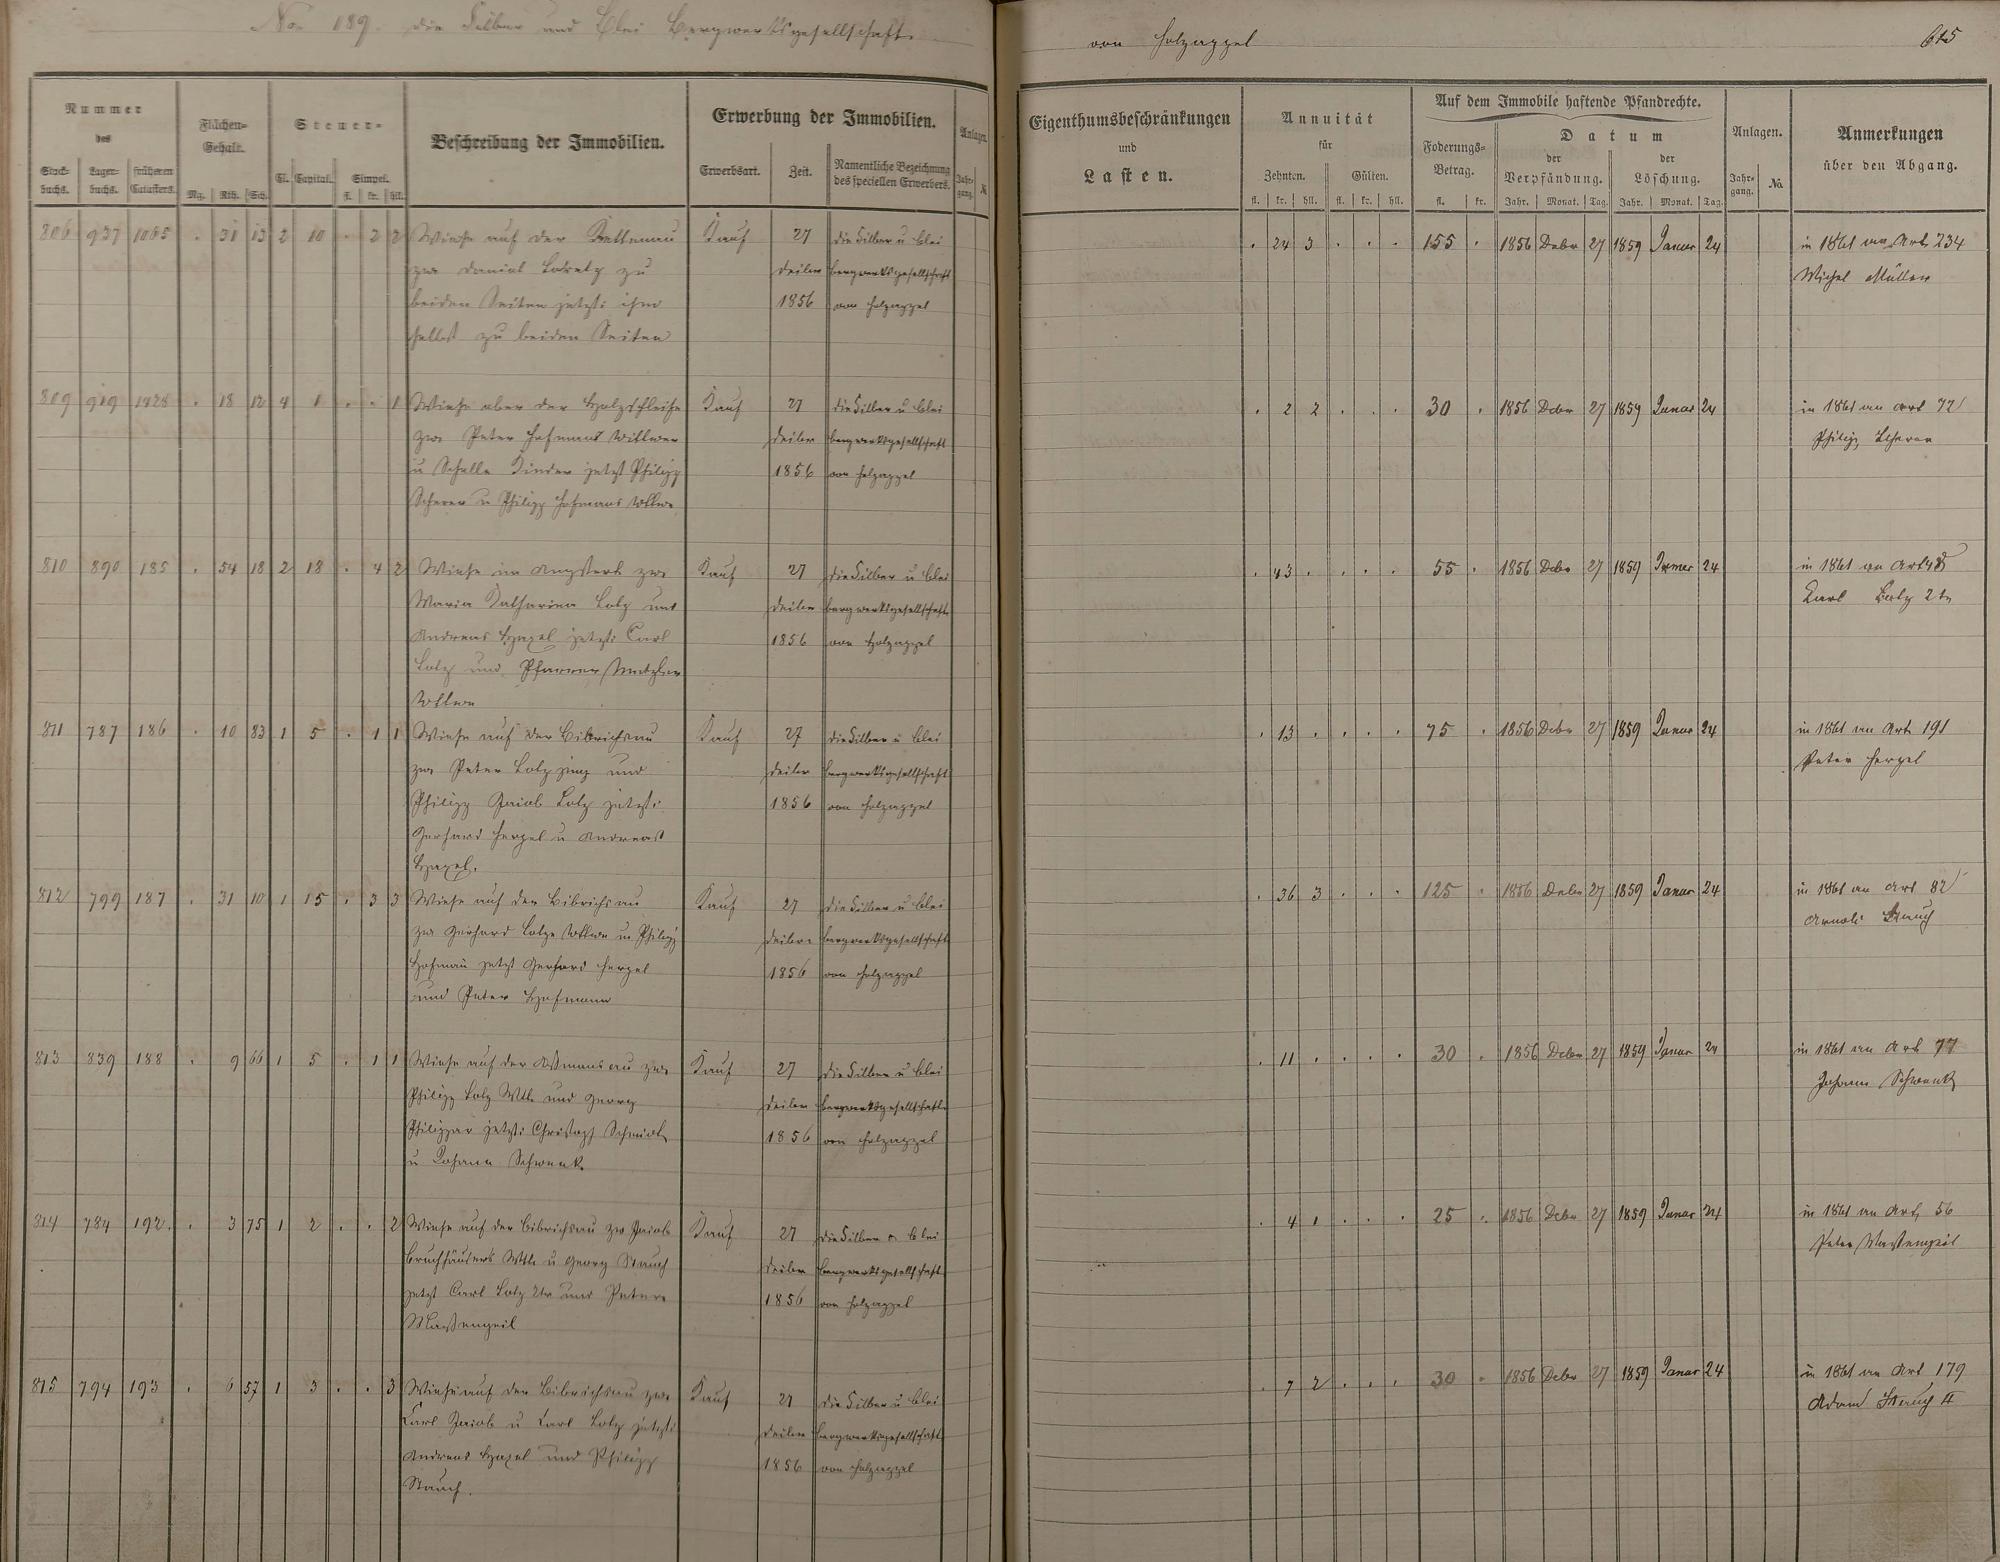 No 189. die Silber und Blei Bergwerksgesellschaft
von Holzappel
615
Nummer
des
Stock-
buchs.
Lager-
buchs.
früheren
Catasters.
Flächen-
Gehalt.
Mg.
Rth.
Sch.
Steuer-
Cl.
Capital.
Simpel.
fl.
kr.
hll.
Beschreibung der Immobilien.
Erwerbung der Immobilien.
Erwerbsart.
Zeit.
Namentliche Bezeichnung
des speciellen Erwerbers.
Anlagen.
Jahr-
gang.
№
Eigenthumsbeschränkungen
und
Lasten.
Annuität
für
Zehnten.
Gülten.
fl. kr. hll. fl. kr. hll.
Auf dem Immobile haftende Pfandrechte.
Foderungs-
Betrag.
fl. kr.
Datum
der
Verpfändung.
der
Löschung.
Jahr. Monat. Tag. Jahr. Monat. Tag.
Anlagen.
Jahr-
gang.
No.
Anmerkungen
über den Abgang.
806 937 1065 . 31 13 2 10 . 2 2 Wiese auf der Kettenau Kauf 27 die Silber u Blei . 24 3 . . . 155 . 1856 Debr 27 1859 Januar 24 in 1861 an Art 234
zw Daniel zu Bergwerksgesellschaft Michel Müller
beiden Seiten jetzt: ihm 1856 von Holzappel
selbst zu beiden Seiten
809 919 1428 . 18 12 4 1 . . 1 Wiese ober der Kauf 27 die Silber u Blei . 2 2 . . . 30 . 1856 Debr 27 1859 Januar 24 in 1861 an Art 72
zw Peter Hofmanns Wittwer Bergwerksgesellschaft Philipp Scherer
u Kinder jetzt Philipp 1856 von Holzappel
Scherer u Philipp Hofmanns Wittwe
810 890 185 . 54 18 2 18 . 4 2 Wiese im zw Kauf 27 die Silber u Blei . 43 . . . . 55 . 1856 Debr 27 1859 Januar 24 in 1861 an Art
Maria Katharina Lotz und Bergwerksgesellschaft Karl Lotz 2tr
Andreas Hazel jetzt: Carl 1856 von Holzappel
Lotz und Pfarrer
Wittwe
811 787 186 . 10 83 1 5 . 1 1 Wiese auf der Bibrichsau Kauf 27 die Silber u Blei . 13 . . . . 75 . 1856 Debr 27 1859 Januar 24 in 1861 an Art 191
zw Peter Lotz jung und Bergwerksgesellschaft Peter Herzel
Philipp Jacob Lotz jetzt: 1856 von Holzappel
Gerhard Herzel u Andreas
Hazel.
812 799 187 . 31 10 1 15 . 3 3 Wiese auf der Bibrichsau Kauf 27 die Silber u Blei . 36 3 . . . 125 . 1856 Debr 27 1859 Januar 24 in 1861 an Art 82
zw Gerhard Lotz Wittwe u Philipp Bergwerksgesellschaft Arnold Stauch
Hofman jetzt Gerhard Herzel 1856 von Holzappel
und Peter Hofmann
813 839 188 . 9 66 1 5 . 1 1 Wiese auf der Aßmansau zw Kauf 27 die Silber u Blei . 11 . . . . 30 . 1856 Debr 27 1859 Januar 24 in 1861 an Art 77
Philipp Lotz Wtb und Georg Bergwerksgesellschaft Johann Schwenk
jetzt: Christoph Schmidt 1856 von Holzappel
u Johann Schwenk
814 784 192 . 3 75 1 2 . . 2 Wiese auf der Bibrichsau zw Jacob Kauf 27 die Silber u Blei . 4 1 . . . 25 . 1856 Debr 27 1859 Januar 24 in 1861 an Art 56
Bruchhäusers Wtb u Georg Stauch Bergwerksgesellschaft Peter Massengeil
jetzt Carl Lotz 2tr und Peter 1856 von Holzappel
Massengeil
815 794 193 . 6 57 1 3 . . 3 Wiese auf der Bibrichsau zw Kauf 27 die Silber u Blei . 7 2 . . . 30 . 1856 Debr 27 1859 Januar 24 in 1861 an Art 179
Carl Jacob u Carl Lotz jetzt: Bergwerksgesellschaft Adam Stauch II
Andreas Hazel und Philipp 1856 von Holzappel
Stauch.